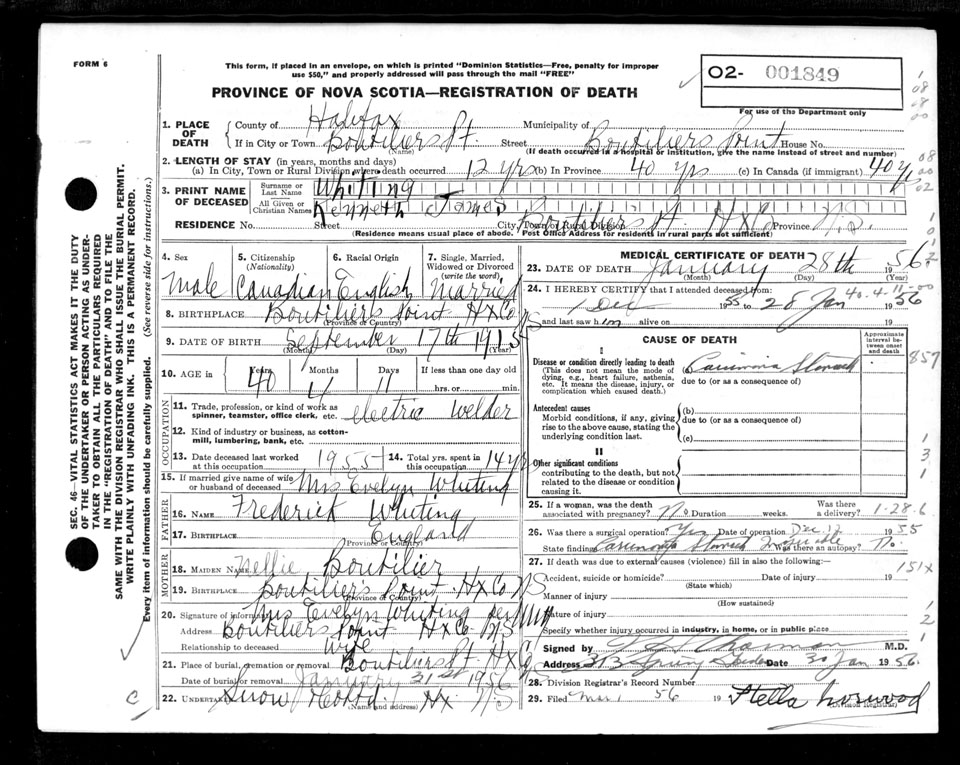 FORM 6
This form, if placed in an envelope, on which is printed "Dominion Statistics—Free, penalty for improper
use $50," and properly addressed will pass through the mail "FREE"
O2- 001849
For use of the Department only
PROVINCE OF NOVA SCOTIA—REGISTRATION OF DEATH
1. PLACE OF DEATH
County of Halifax Municipality of
If in City or Town Boutiliers Pt. Street Boutiliers Point House No.
(Name) (If death occurred in a hospital or institution, give the name instead of street and number)
2. LENGTH OF STAY (in years, months and days)
(a) In City, Town or Rural Division where death occurred 12 yrs (b) In Province 40 yrs (c) In Canada (if immigrant) 40 y
3. PRINT NAME OF DECEASED
Surname or Last Name Whiting
All Given or Christian Names Kenneth James
RESIDENCE No. Street City, Town or Rural Division Boutiliers Pt HxCo Province N.S.
(Residence means usual place of abode. Post Office Address for residents in rural parts not sufficient)
4. Sex
Male
5. Citizenship
(Nationality)
Canadian
6. Racial Origin
English
7. Single, Married,
Widowed or Divorced
(write the word)
Married
8. BIRTHPLACE Boutiliers Point HxCo NS
(Province or Country)
9. DATE OF BIRTH September 17th 1915
(Month) (Day) (Year)
10. AGE in Years Months Days If less than one day old
40 4 11 hrs. or min.
OCCUPATION
11. Trade, profession, or kind of work as
spinner, teamster, office clerk, etc. electric welder
12. Kind of industry or business, as cotton-
mill, lumbering, bank, etc.
13. Date deceased last worked
at this occupation 1955
14. Total yrs. spent in
this occupation 14 yrs
15. If married give name of wife
or husband of deceased Mrs Evelyn Whiting
FATHER
16. Name Frederick Whiting
17. Birthplace England
(Province or Country)
MOTHER
18. Maiden Name Nellie Boutilier
19. Birthplace Boutilier's Point HxCo NS
(Province or Country)
20. Signature of informant Mrs Evelyn Whiting
Address Boutiliers Point HxCo NS
Relationship to deceased wife
21. Place of burial, cremation or removal Boutiliers Pt. HxCo
Date of burial or removal January 31st 1956
22. Undertaker Snow Hx NS
(Name and address)
MEDICAL CERTIFICATE OF DEATH
23. DATE OF DEATH January 28th 1956
(Month) (Day) (Year)
24. I HEREBY CERTIFY that I attended deceased from:
1 Dec 1955 to 28 Jan 1956
40.4.11-00
and last saw him alive on 19
CAUSE OF DEATH
Approximate
interval be-
tween onset
and death
I
Disease or condition directly leading to death
(This does not mean the mode of
dying, e.g., heart failure, asthenia,
etc. It means the disease, injury, or
complication which caused death.)
Carcinoma Stomach
due to (or as a consequence of)
857
Antecedent causes
Morbid conditions, if any, giving
rise to the above cause, stating the
underlying condition last.
(b)
due to (or as a consequence of)
(c)
II
Other significant conditions
contributing to the death, but not
related to the disease or condition
causing it.
25. If a woman, was the death
associated with pregnancy? No Duration weeks. Was there
a delivery?
1-28-6
26. Was there a surgical operation? Yes Date of operation Dec. 12 1955
State findings Carcinoma Stomach Inoperable Was there an autopsy? No.
27. If death was due to external causes (violence) fill in also the following:
151x
Accident, suicide or homicide? Date of injury 19
(State which)
Manner of injury
(How sustained)
Nature of injury
Specify whether injury occurred in industry, in home, or in public place
Signed by M.D.
Address 313 Spring Garden Date 30 Jan 1956
28. Division Registrar's Record Number
29. Filed Mar 1 56 19 Stella Norwood
(Division Registrar)
SEC. 46—VITAL STATISTICS ACT MAKES IT THE DUTY
OF THE UNDERTAKER OR PERSON ACTING AS UNDER-
TAKER TO OBTAIN ALL THE PARTICULARS REQUIRED
IN THE "REGISTRATION OF DEATH" AND TO FILE THE
SAME WITH THE DIVISION REGISTRAR WHO SHALL ISSUE THE BURIAL PERMIT.
WRITE PLAINLY WITH UNFADING INK. THIS IS A PERMANENT RECORD.
Every item of information should be carefully supplied. (See reverse side for instructions.)